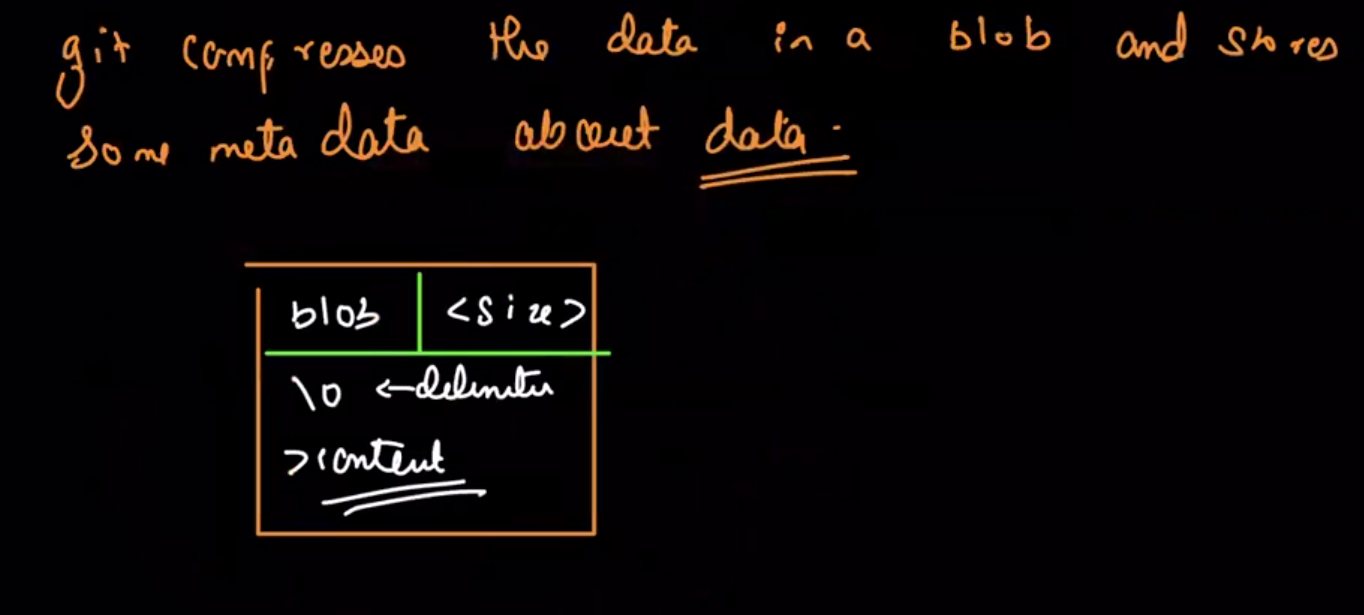 git compresses the data in a blob and stores
some meta data about data.
blob <size>
\0 ←delimiter
>content